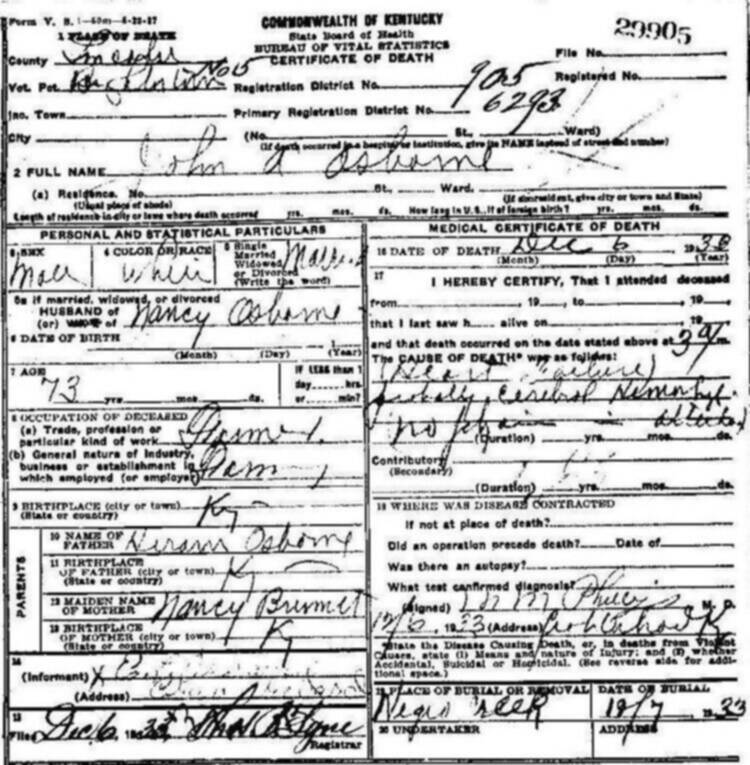 Form V. S. 1-50m-6-22-27
COMMONWEALTH OF KENTUCKY
State Board of Health
BUREAU OF VITAL STATISTICS
CERTIFICATE OF DEATH
29905
1 PLACE OF DEATH
County
File No.
Vot. Pct. No 5
Registration District No. 905
Registered No.
Inc. Town
Primary Registration District No. 6293
City (No. St., Ward)
(If death occurred in a hospital or institution, give its NAME instead of street and number)
2 FULL NAME John A Osborne
(a) Residence. No. St., Ward.
(Usual place of abode) (If nonresident, give city or town and State)
Length of residence in city or town where death occurred yrs. mos. ds. How long in U.S., if of foreign birth? yrs. mos. ds.
PERSONAL AND STATISTICAL PARTICULARS
3 SEX Male
4 COLOR OR RACE White
5 Single Married Widowed or Divorced (Write the word) Married
5a If married, widowed, or divorced
HUSBAND of
(or) WIFE of Nancy Osborne
6 DATE OF BIRTH
(Month) (Day) (Year)
7 AGE 73 yrs. mos. ds.
IF LESS than 1 day hrs. or min?
8 OCCUPATION OF DECEASED
(a) Trade, profession or particular kind of work Farmer
(b) General nature of Industry, business or establishment in which employed (or employer) Farm
9 BIRTHPLACE (city or town)
(State or country) Ky
PARENTS
10 NAME OF FATHER Hiram Osborne
11 BIRTHPLACE OF FATHER (city or town)
(State or country) Ky
12 MAIDEN NAME OF MOTHER Nancy
13 BIRTHPLACE OF MOTHER (city or town)
(State or country) Ky
14
(Informant)
(Address)
15
Filed Dec 6, 1933
Registrar
MEDICAL CERTIFICATE OF DEATH
16 DATE OF DEATH Dec 6
(Month) (Day) (Year)
17 I HEREBY CERTIFY, That I attended deceased
from 19 , to 19
that I last saw h alive on 19
and that death occurred on the date stated above at 3 m.
The CAUSE OF DEATH* was as follows:
(Heart Failure)
probably Cerebral
(no in
(Duration) yrs. mos. ds.
Contributory
(Secondary)
(Duration) yrs. mos. ds.
18 WHERE WAS DISEASE CONTRACTED
If not at place of death?
Did an operation precede death? Date of
Was there an autopsy?
What test confirmed diagnosis?
(Signed) M. D.
12/6, 1933 (Address)
*State the Disease Causing Death, or, in deaths from Violent
Causes, state (1) Means and nature of Injury; and (2) whether
Accidental, Suicidal or Homicidal. (See reverse side for addi-
tional space.)
19 PLACE OF BURIAL OR REMOVAL DATE OF BURIAL
Negro Creek 12/7 1933
20 UNDERTAKER ADDRESS